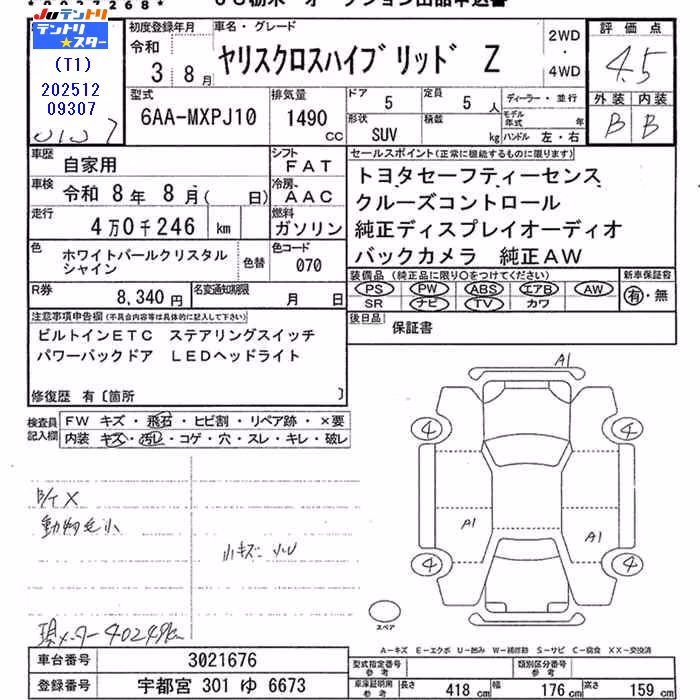 JU テントリ
テントリ★スター
(T1)
202512
09307
初度登録年月
令和
3 8月
車名・グレード
ヤリスクロスハイブリッド Z
2WD
・
4WD
評価点
4.5
外装 内装
B B
型式
6AA-MXPJ10
排気量
1490
CC
ドア 5
定員 5 人
形状
SUV
積載
kg
ディーラー・並行
モデル年式 年
ハンドル 左・右
車歴
自家用
シフト
FAT
車検
令和 8年 8月( 日)
冷房
AAC
走行
4万0千246 km
燃料
ガソリン
色
ホワイトパールクリスタル
シャイン
色替
色コード
070
R券
8,340円
名変通知期限
月 日
セールスポイント(正常に機能するものに限ります)
トヨタセーフティーセンス
クルーズコントロール
純正ディスプレイオーディオ
バックカメラ 純正AW
装備品(純正品に限り○をつけてください)
PS PW ABS エアB AW
SR ナビ TV カワ
新車保証書
有・無
後日品
保証書
注意事項申告欄(不具合内容等は具体的に記入して下さい)
ビルトインETC ステアリングスイッチ
パワーバックドア LEDヘッドライト
修復歴 有〔箇所 〕
検査員
記入欄
FW キズ・飛石・ヒビ割・リペア跡・×要
内装 キズ・汚レ・コゲ・穴・スレ・キレ・破レ
B/T X
動物毛小
小キズ 小U
現メーター40249km
A1
4
4
A1
A1
4
4
スペア
A-キズ E-エクボ U-凹み W-補修跡 S-サビ C-腐食 XX-交換済
車台番号
3021676
登録番号
宇都宮 301 ゆ 6673
型式指定番号
参考
類別区分番号
参考
車庫証明用
参考
長さ
418 cm
幅
176 cm
高さ
159 cm